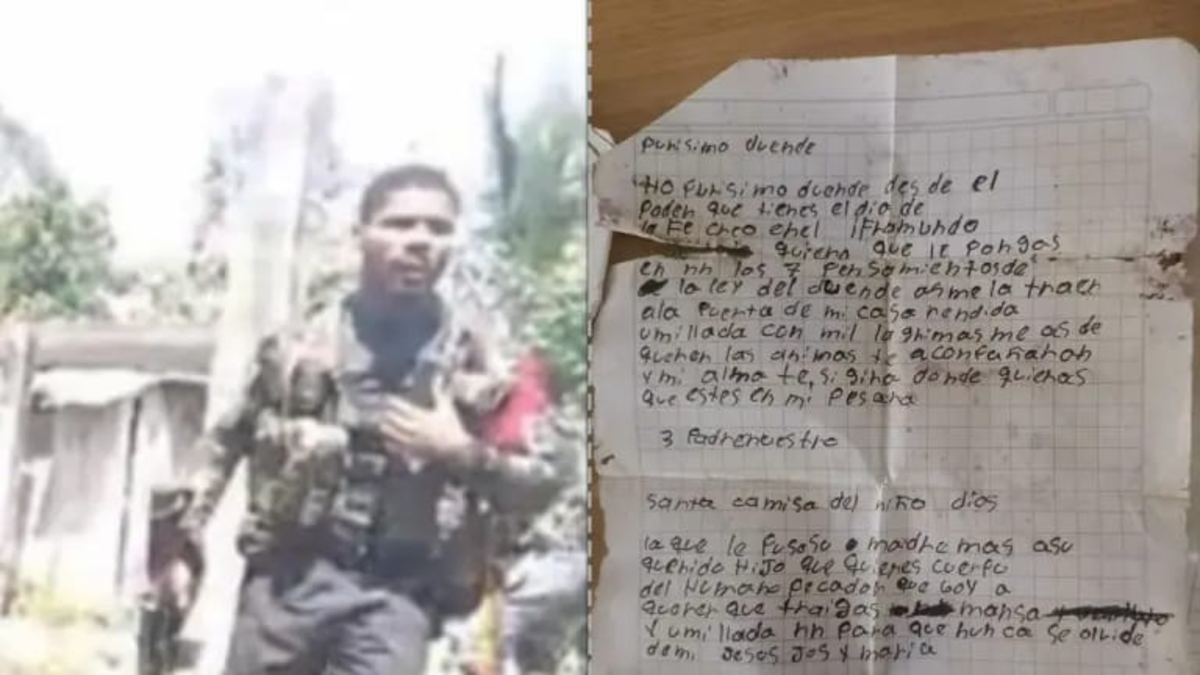 purisimo duende
HO purisimo duende des de el
Poden que tienes el dia de
la Fe creo en el
quiero que le pongas
en nn los 7 pensamientos de
la ley del duende as me la traer
ala puerta de mi casa rendida
umillada con mil lagrimas me as de
queren las animas te aconpañaran
y mi alma te, sigira donde quieras
que estes en mi pesara
3 Padrenuestro
santa camisa del niño dios
la que le puso su madre mas asu
querido Hijo que quienes cuerpo
del Humano pecador que boy a
querer que traigas mansa
y umillada nn para que nunca se olvide
de mi Jesos Jos y maria